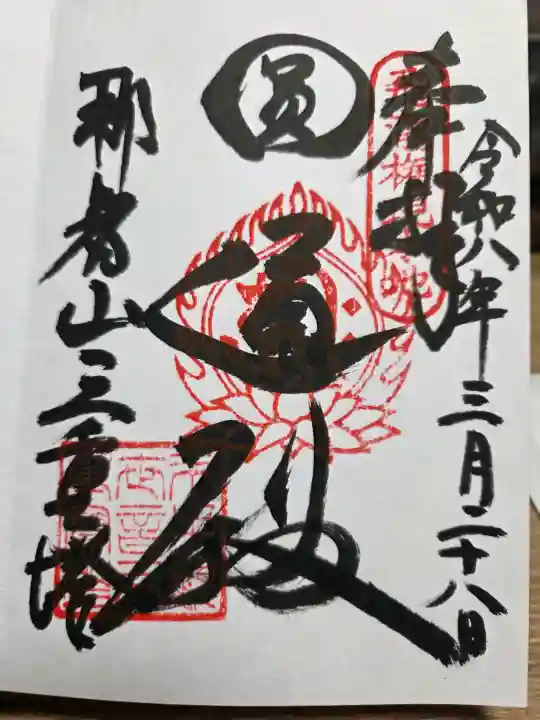 奉拝
令和八年三月二十八日
圓通殿
那智山三重塔